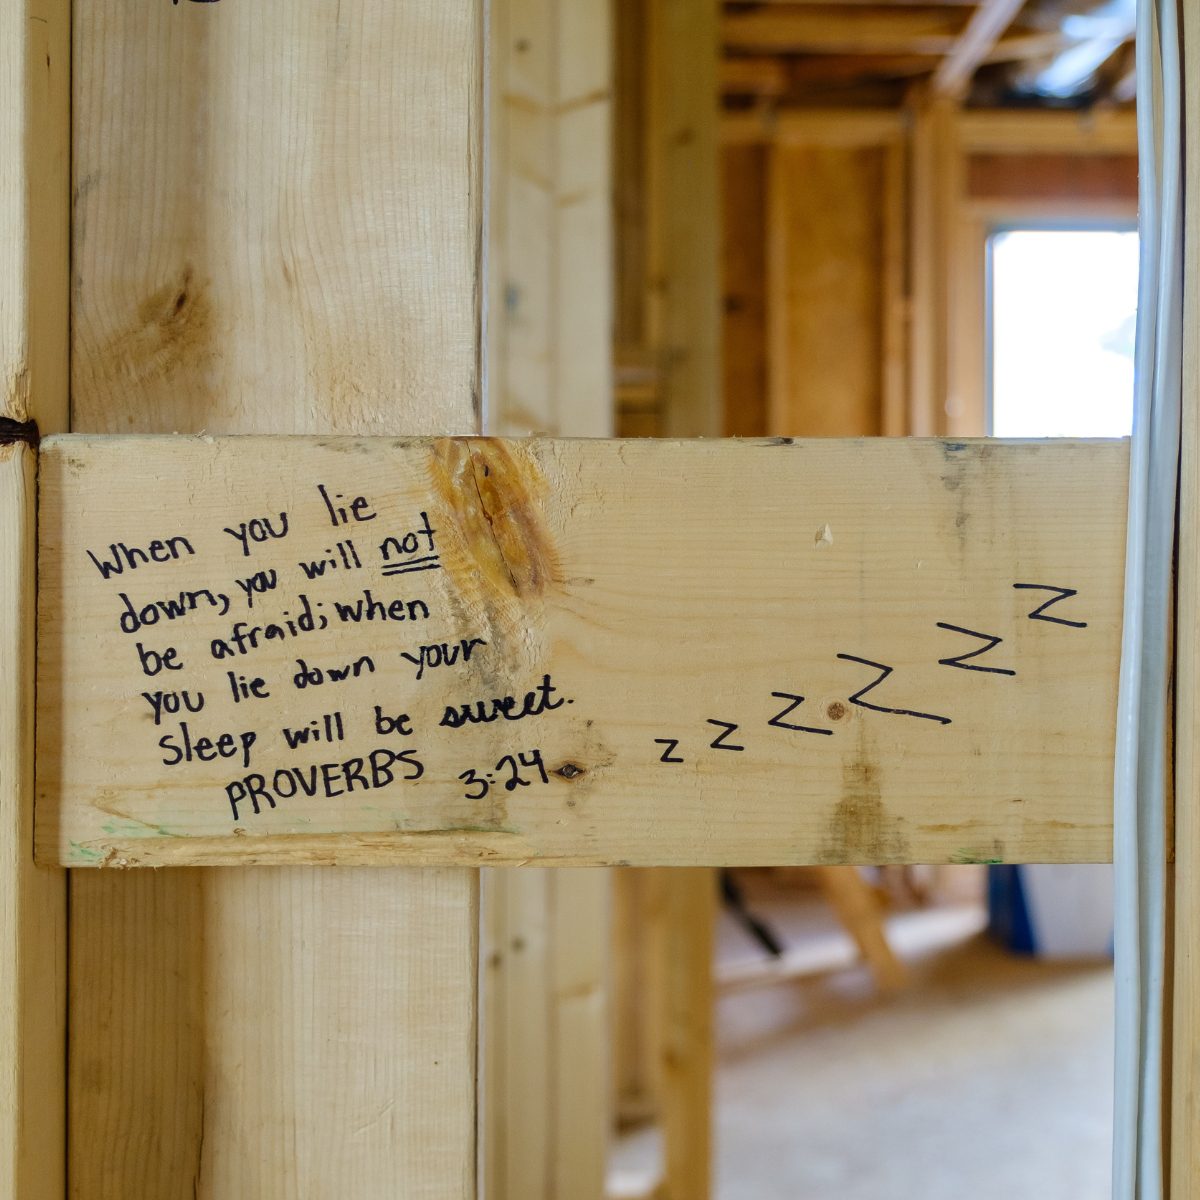 When you lie
down, you will not
be afraid; when
you lie down your
sleep will be sweet.
PROVERBS 3:24
z z z z z z